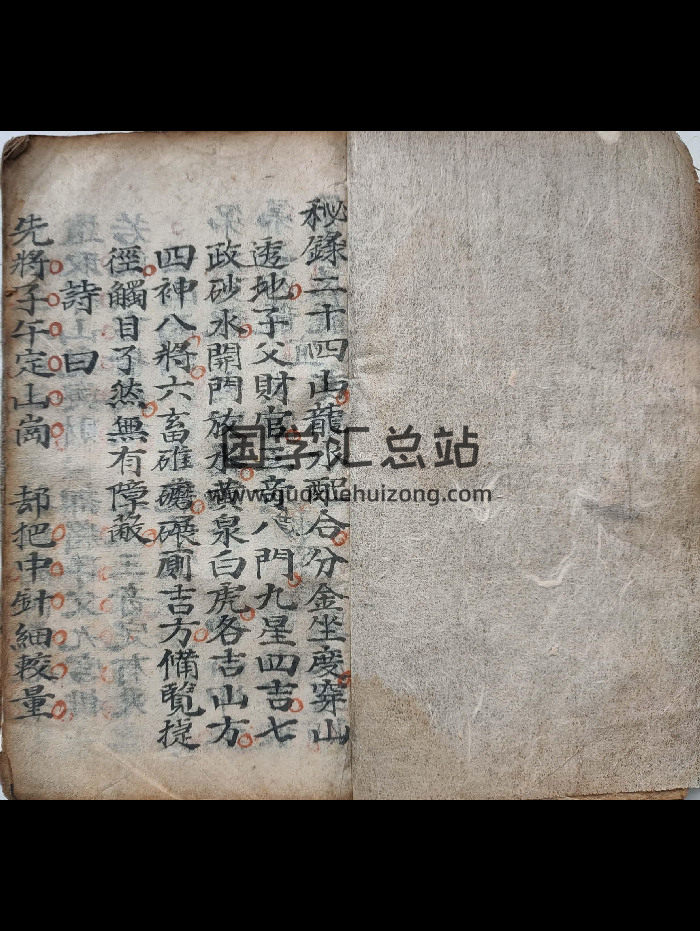 秘錄二十四山龍水配合分金坐度穿山
透地子父財官三奇八門九星四吉七
政砂水開門放水黃泉白虎各吉山方
四神八將六畜碓磨碾廁吉方備覽捷
徑觸目了然無有障蔽
詩曰
先將子午定山崗 却把中針細較量
国学汇总站
www.guoxuehuizong.com